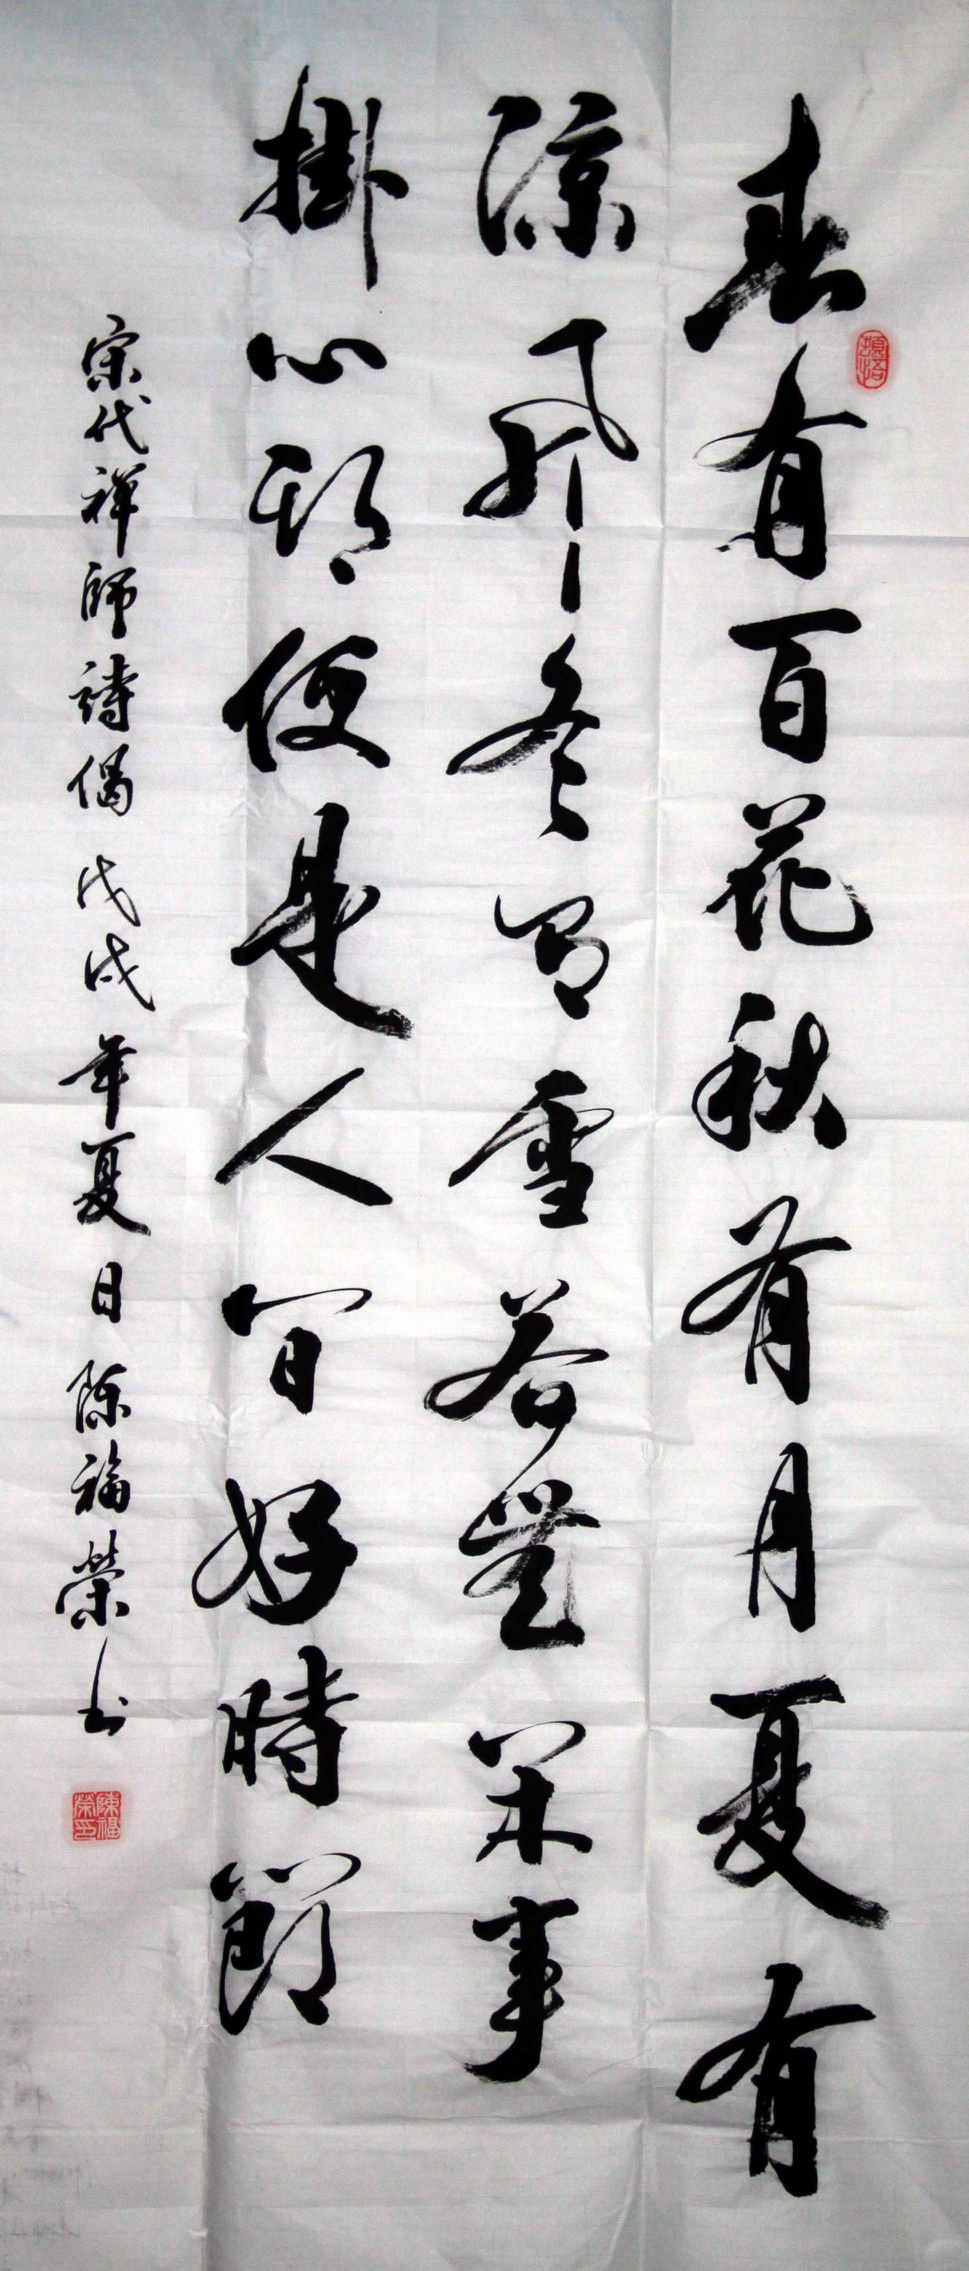 春有百花秋有月夏有
涼風冬有雪若無閑事
掛心頭便是人間好時節
宋代禅師詩偈戊戌年夏日陈福榮书
陳福榮印